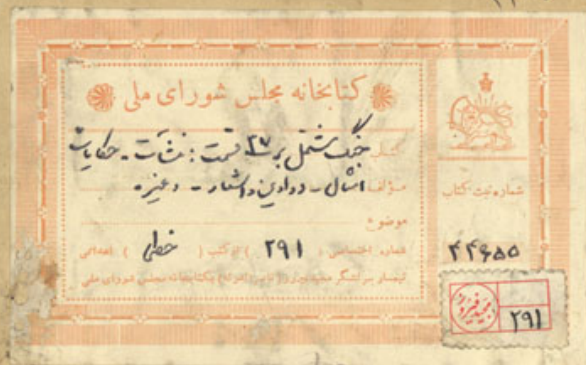 کتابخانه مجلس شورای ملی
کتاب جنگ مشتمل بر ۲۷ قسمت : منشآت - حکایات
مؤلف امثال - دواوین و اشعار - و غیره
موضوع
شماره ثبت کتاب
شماره اختصاصی ( ۲۹۱ ) از کتب ( خطی ) اهدائی
تیمسار سرلشکر مجید فیروز (ناصرالدوله) بکتابخانه مجلس شورای ملی
۴۴۶۵۵
مجید فیروز
۲۹۱